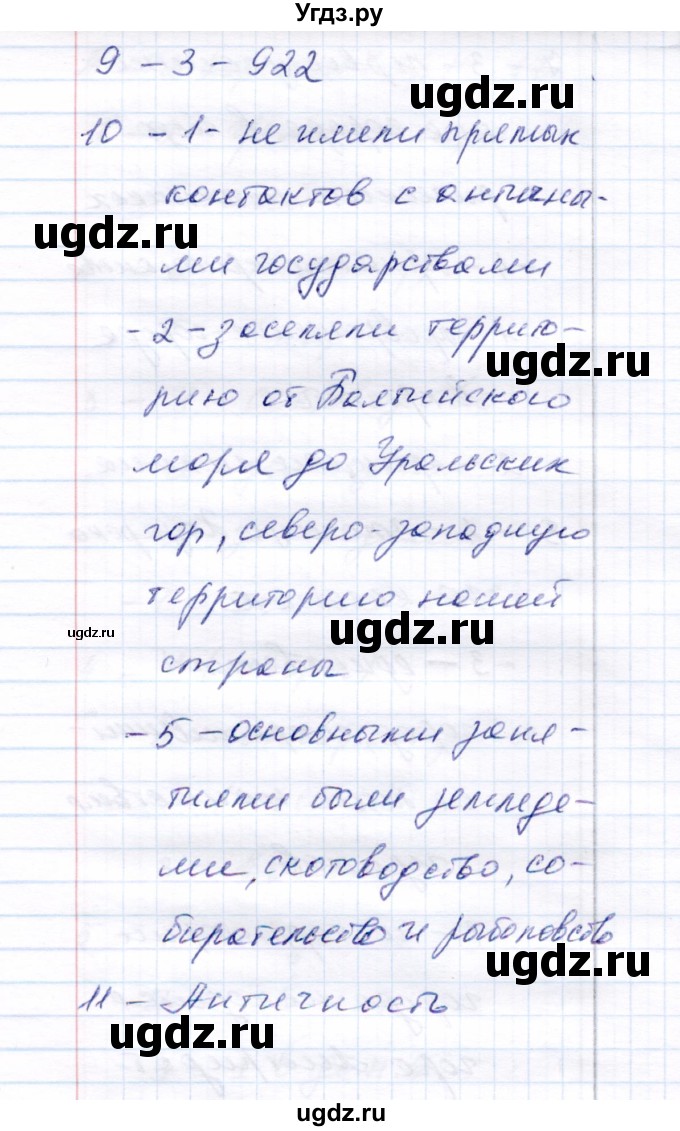 Угдз.ру
9 - 3 - 922
ugdz.ru
10 - 1 - не имели прямых
контактов с античны-
ugdz.ru
ми государствами
- 2 - заселяли террито-
ugdz.ru
рию от Балтийского
моря до Уральских
гор, северо-западную
территорию нашей
ugdz.ru
ugdz.ru
страны
- 5 - основными заня-
тиями были землede-
ми, скотоводство, со-
бирательство и рыболовство
ugdz.ru
11 - Античность
ugdz.ru
ugdz.ru